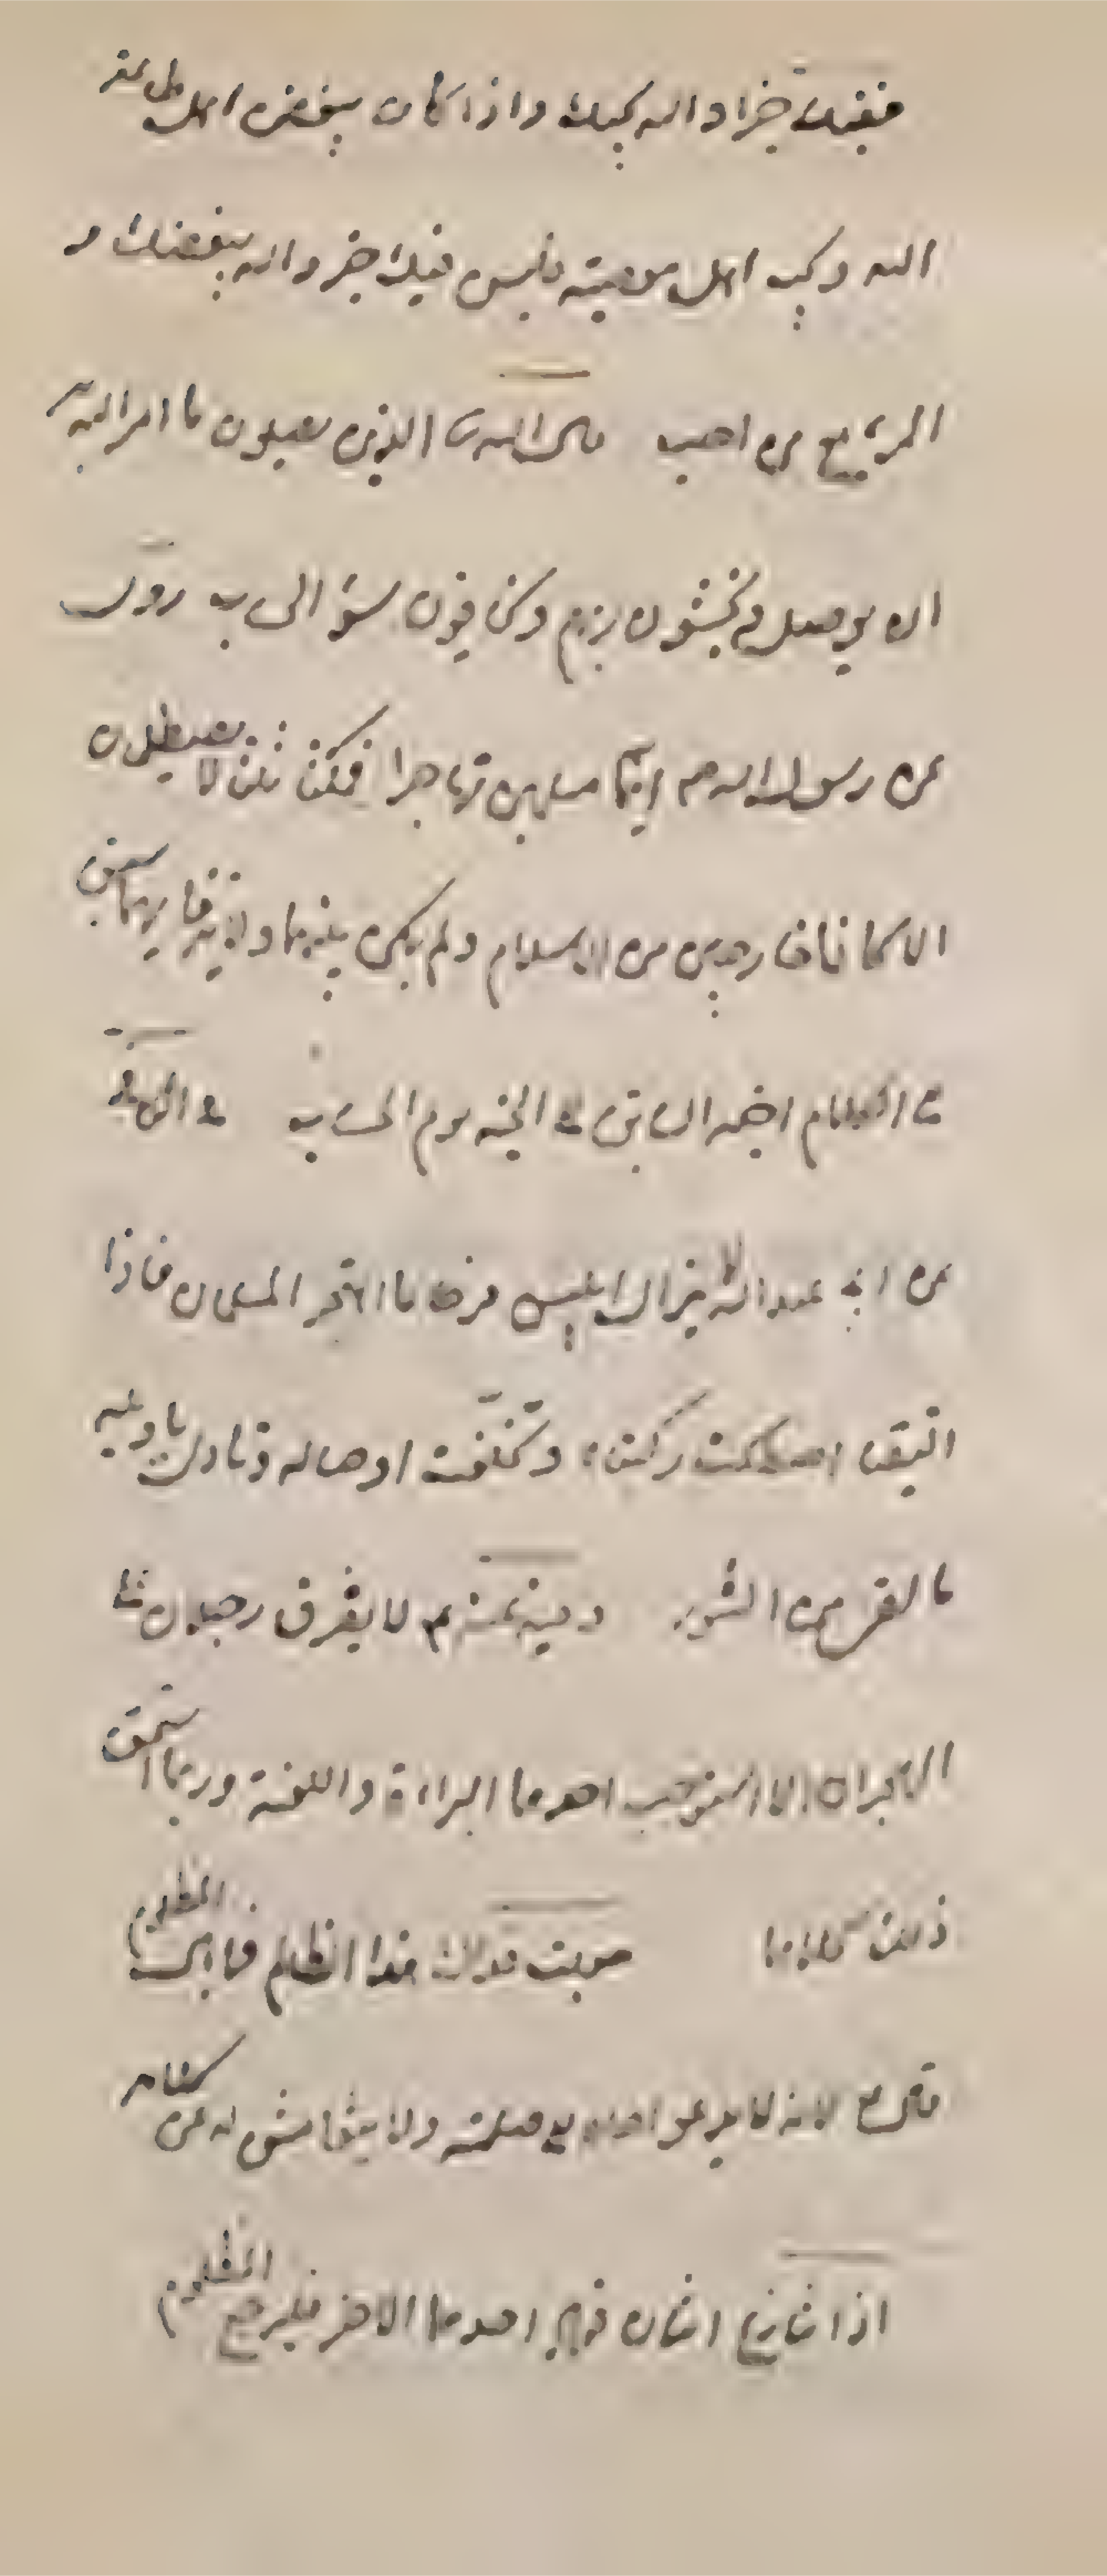 ففیك خیرا والله یحبك واذا كان یبغض اهل طاعة
الله ویحب اهل معصیته فلیس فیك خیر والله یبغضك و
المرء مع من احب قال الله تعالی الذین یصلون ما امر الله به
ان یوصل ویخشون ربهم ویخافون سوء الحساب روی
عن رسول الله ص ایما مسلمین تهاجرا فمكثا ثلثا لا یصطلحان
الا كانا خارجین من الاسلام ولم یكن بینهما ولایة فایهما سبق
الی الكلام اخیه السابق الی الجنه یوم الحساب فی الكافی
عن ابی عبدالله لا یزال ابلیس فرحا ما اهتجر المسلمان فاذا
التقیا اصطكت ركبتاه وتخلعت اوصاله ونادی یا ویله
ما لقی من الثبور وفیه عنه ع لا یفترق رجلان علی
الهجران الا استوجب احدهما البراءة واللعنة وربما استحق
ذلك كلاهما معتب هذا الظالم فما بال المظلوم
قال ع لانه لا یدعو اخاه الی صلته ولا یتغامس له عن كلامه
اذا تنازع اثنان فعاز احدهما الاخر فلیرجع المظلوم